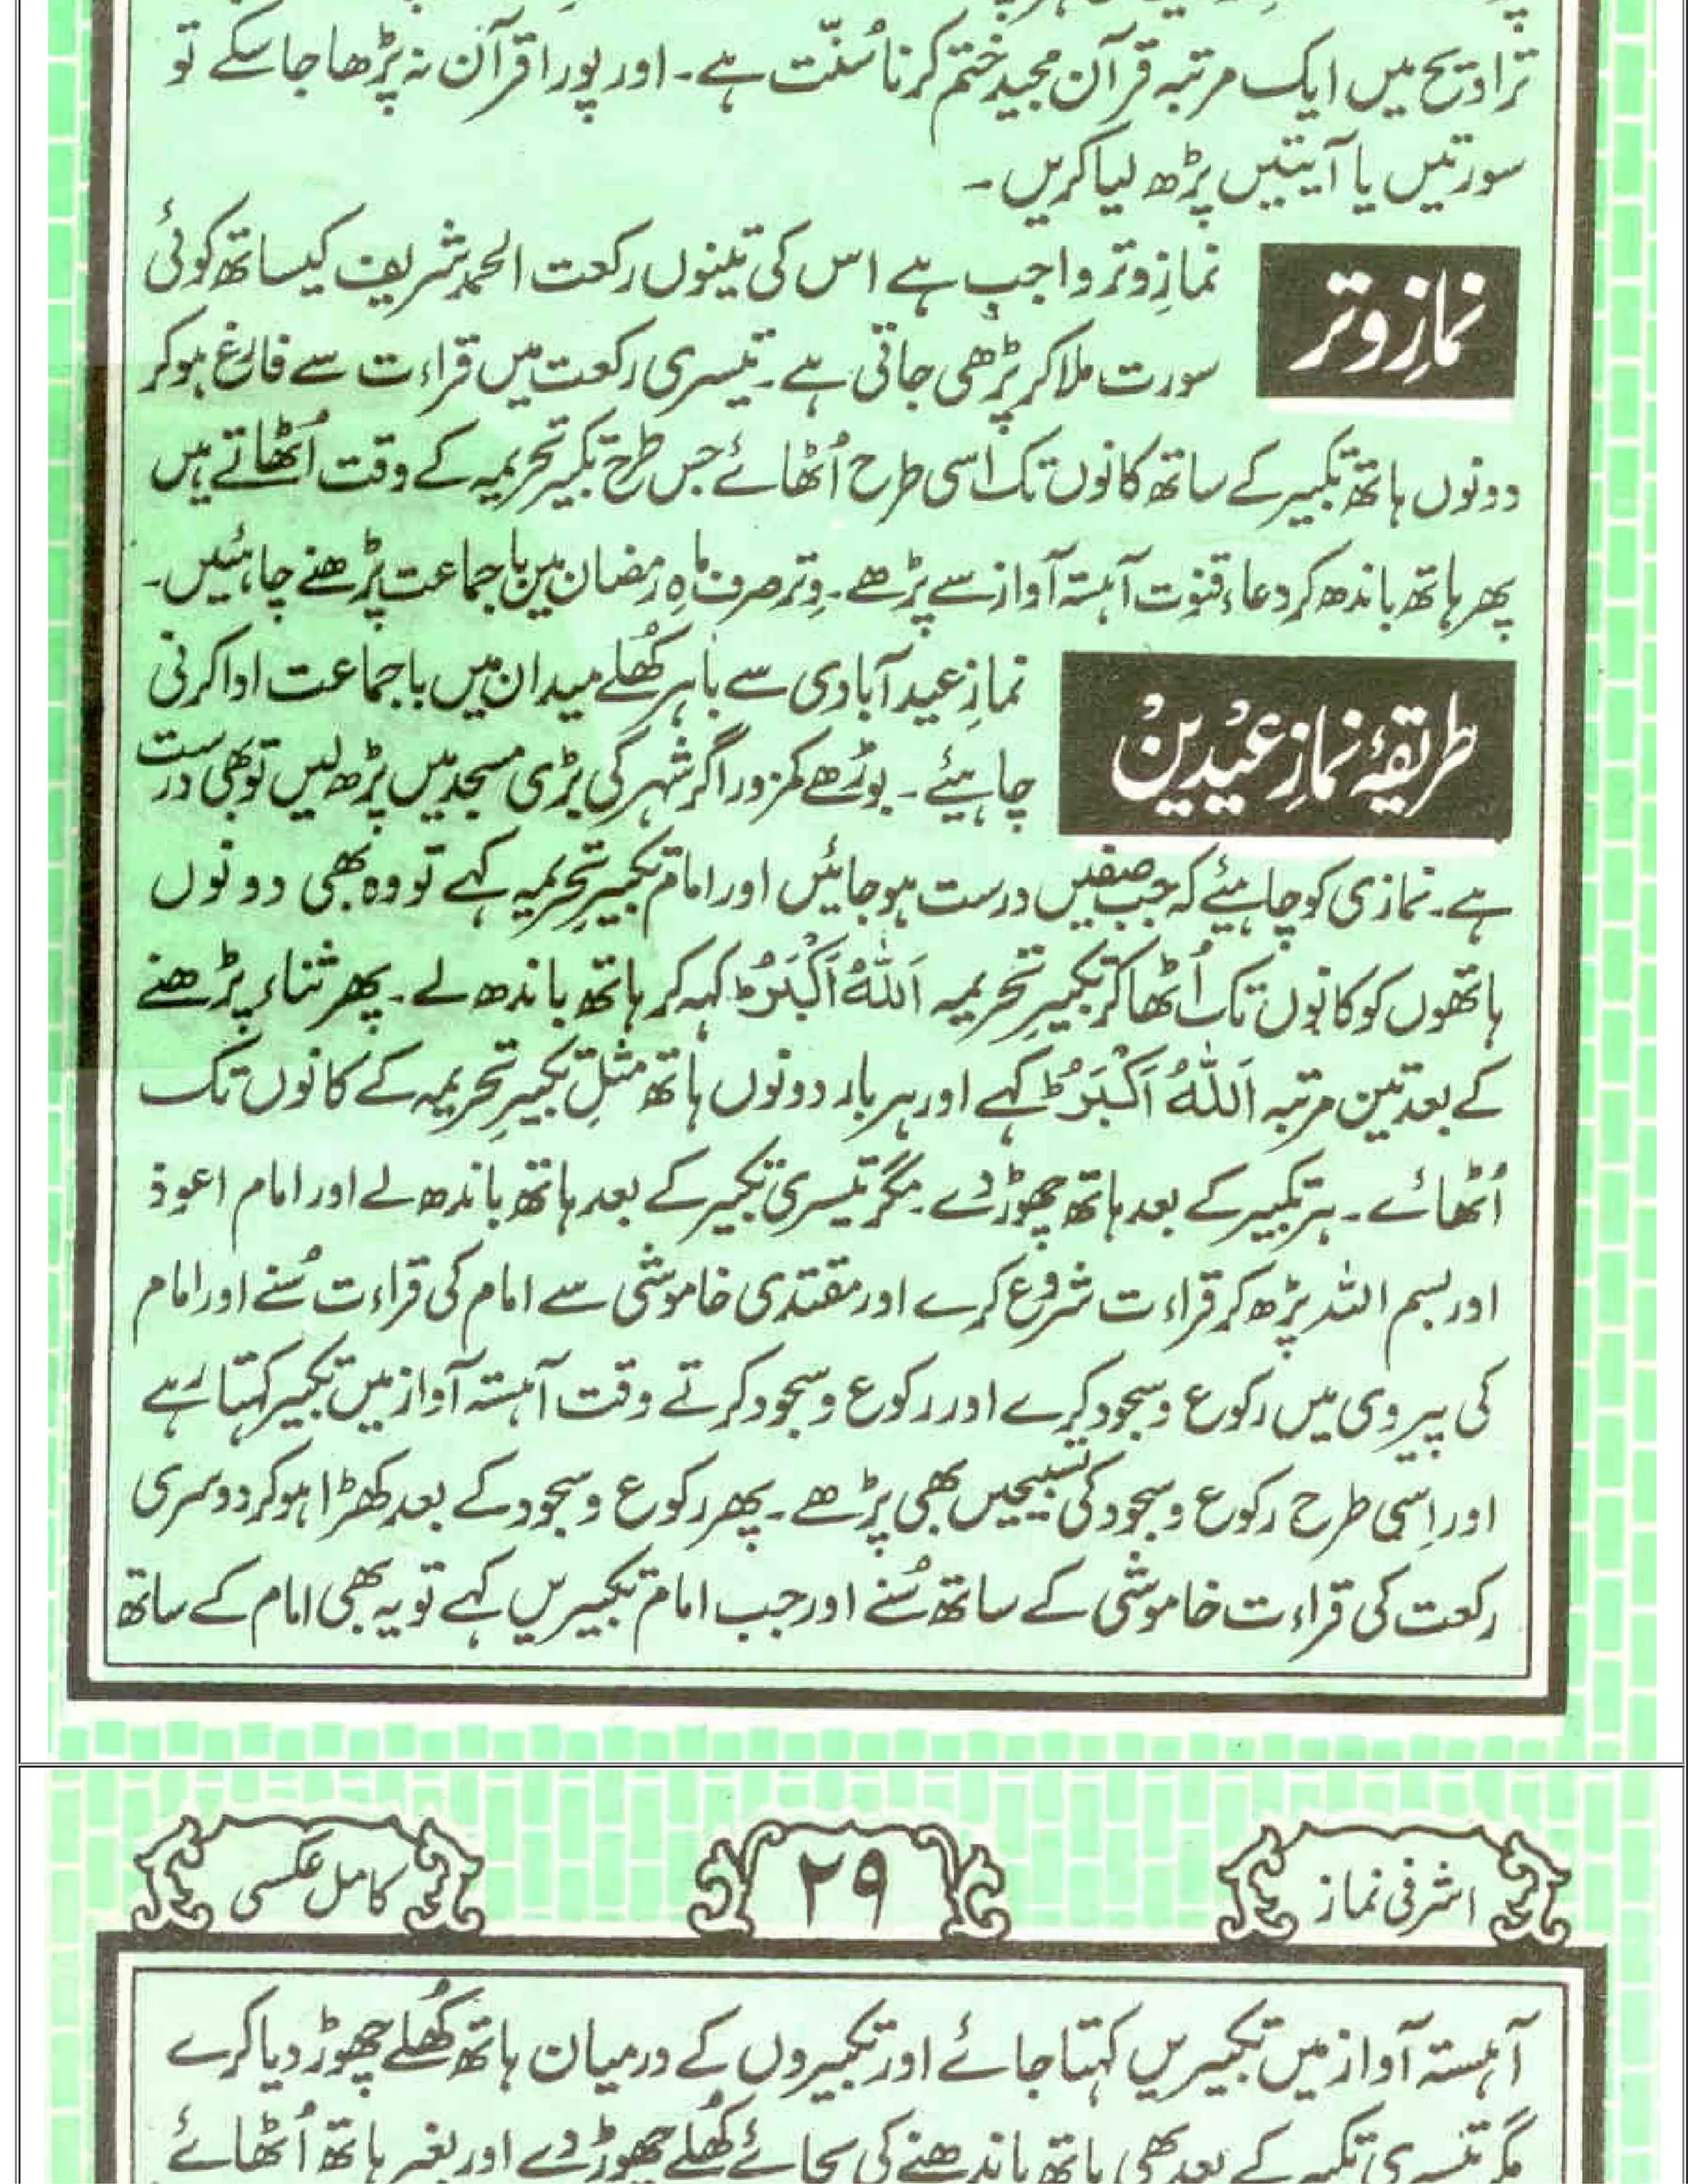 تراویح میں ایک مرتبہ قرآن مجید ختم کرنا سُنّت ہے۔ اور پورا قرآن نہ پڑھا جا سکے تو
سورتیں یا آیتیں پڑھ لیا کریں۔
نمازِ وتر
نمازِ وتر واجب ہے اس کی تینوں رکعت الحمد شریف کیساتھ کوئی
سورت ملا کر پڑھی جاتی ہے۔ تیسری رکعت میں قراءت سے فارغ ہوکر
دونوں ہاتھ تکبیر کے ساتھ کانوں تک اسی طرح اُٹھائے جس طرح تکبیر تحریمہ کے وقت اُٹھاتے ہیں
پھر ہاتھ باندھ کر دعاء قنوت آہستہ آواز سے پڑھے۔ وِتر صرف ماہِ رمضان میں باجماعت پڑھنے چاہئیں۔
طریقۂ نمازِ عیْدینْ
نمازِ عید آبادی سے باہر کُھلے میدان میں باجماعت ادا کرنی
چاہیئے۔ بوڑھے کمزور اگر شہر کی بڑی مسجد میں پڑھ لیں تو بھی درست
ہے۔ نمازی کو چاہیئے کہ جب صفیں درست ہو جائیں اور امام تکبیرِ تحریمہ کہے تو وہ بھی دونوں
ہاتھوں کو کانوں تک اُٹھا کر تکبیرِ تحریمہ اَللّٰهُ اَکْبَرُؕ کہہ کر ہاتھ باندھ لے۔ پھر ثناء پڑھنے
کے بعد تین مرتبہ اَللّٰهُ اَکْبَرُؕ کہے اور ہر بار دونوں ہاتھ مثلِ تکبیرِ تحریمہ کے کانوں تک
اُٹھائے۔ ہر تکبیر کے بعد ہاتھ چھوڑ دے۔ مگر تیسری تکبیر کے بعد ہاتھ باندھ لے اور امام اعوذ
اور بسم اللہ پڑھ کر قراءت شروع کرے اور مقتدی خاموشی سے امام کی قراءت سُنے اور امام
کی پیروی میں رکوع و سجود کرے اور رکوع و سجود کرتے وقت آہستہ آواز میں تکبیر کہتا رہے
اور اِسی طرح رکوع و سجود کی تسبیحیں بھی پڑھے۔ پھر رکوع و سجود کے بعد کھڑا ہو کر دوسری
رکعت کی قراءت خاموشی کے ساتھ سُنے اور جب امام تکبیریں کہے تو یہ بھی امام کے ساتھ
اشرفی نماز
۲۹
کامل عکسی
آہستہ آواز میں تکبیریں کہتا جائے اور تکبیروں کے درمیان ہاتھ کُھلے چھوڑ دیا کرے
مگر تیسری تکبیر کے بعد بھی ہاتھ باندھنے کی بجائے کُھلے چھوڑ دے اور بغیر ہاتھ اُٹھائے